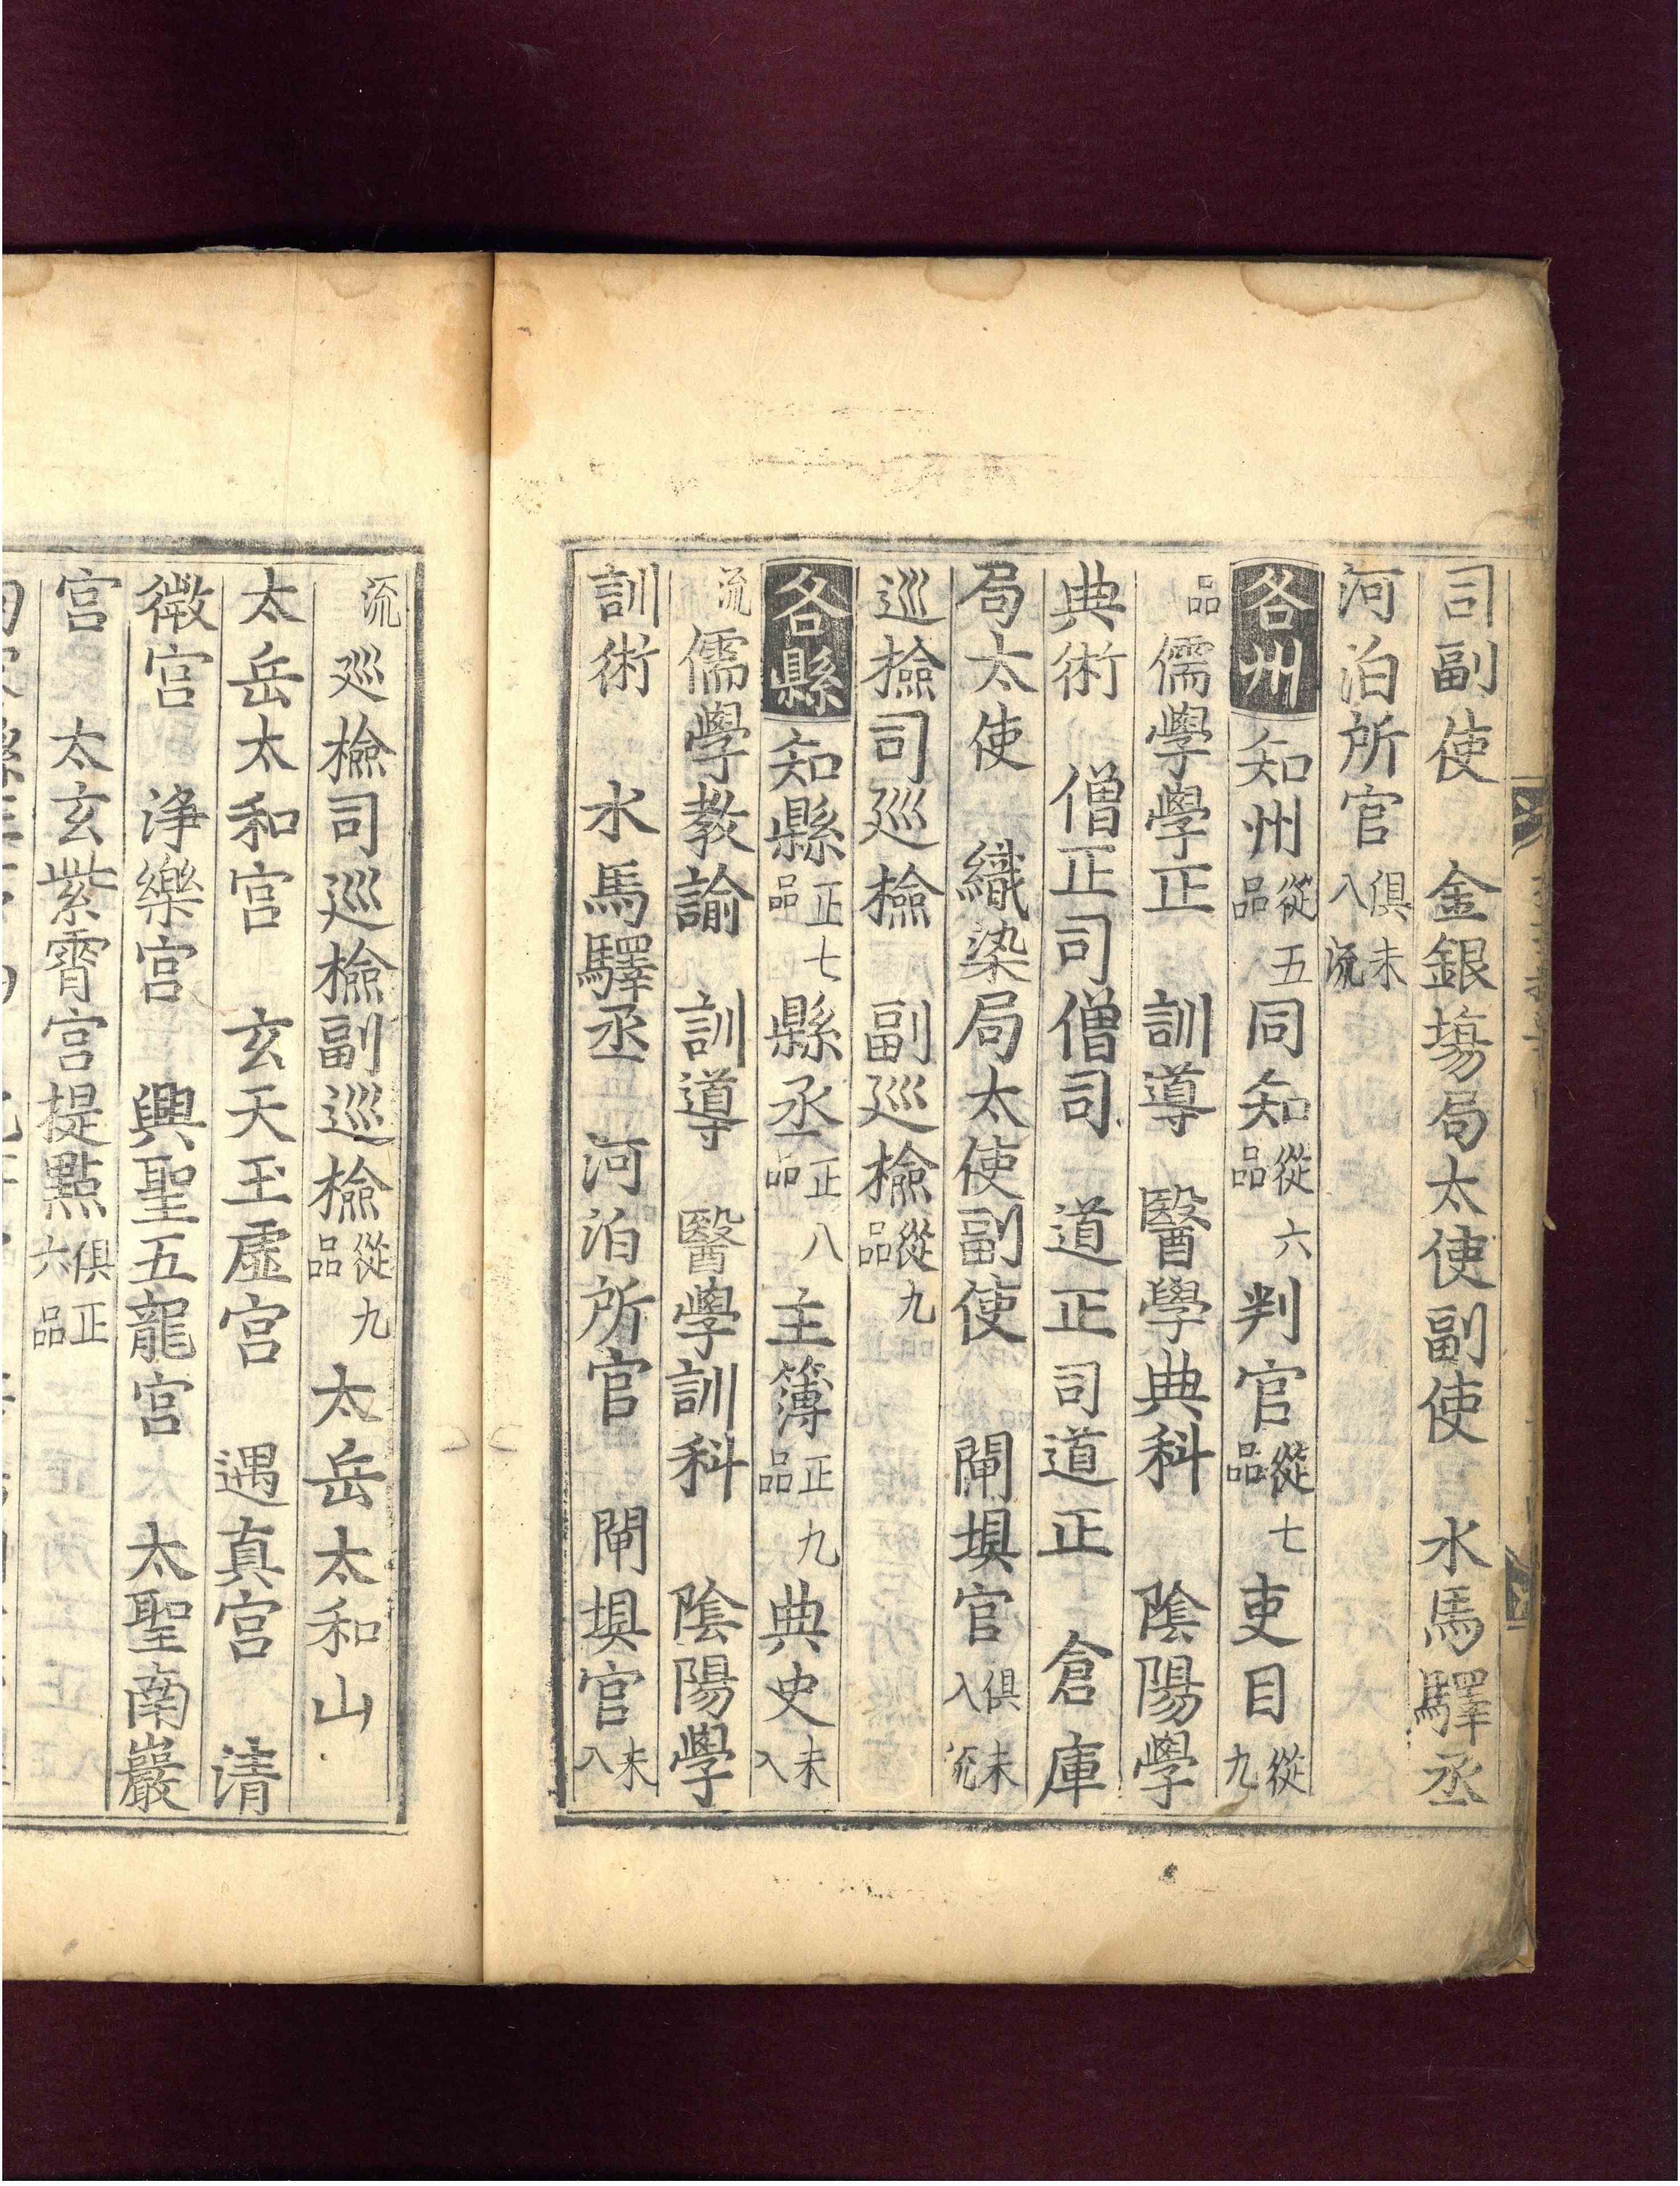 司副使　金銀塲局太使副使　水馬驛丞
河泊所官俱未入流
各州　知州從五品　同知從六品　判官從七品　吏目從九
品　儒學學正　訓導　醫學典科　陰陽學
典術　僧正司僧司　道正司道正　倉庫
局太使　織染局太使副使　閘垻官俱未入流
巡撿司廵撿　副廵撿從九品
各縣　知縣正七品　縣丞正八品　主簿正九品　典史未入
流　儒學教諭　訓導　醫學訓科　陰陽學
訓術　水馬驛丞　河泊所官　閘垻官未入
流　廵檢司廵檢副廵檢從九品　太岳太和山
太岳太和宮　玄天玉虛宮　遇真宮　清
微宮　淨樂宮　興聖五龍宮　太聖南巖
宮　太玄紫霄宮提點俱正六品